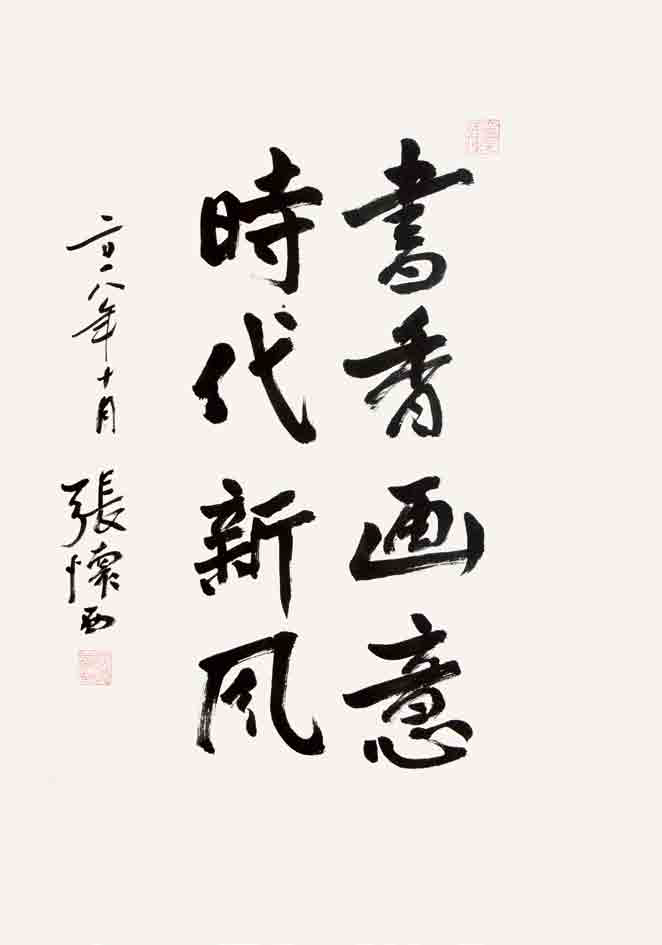 書香画意
時代新风
二〇一八年十月
張懷西